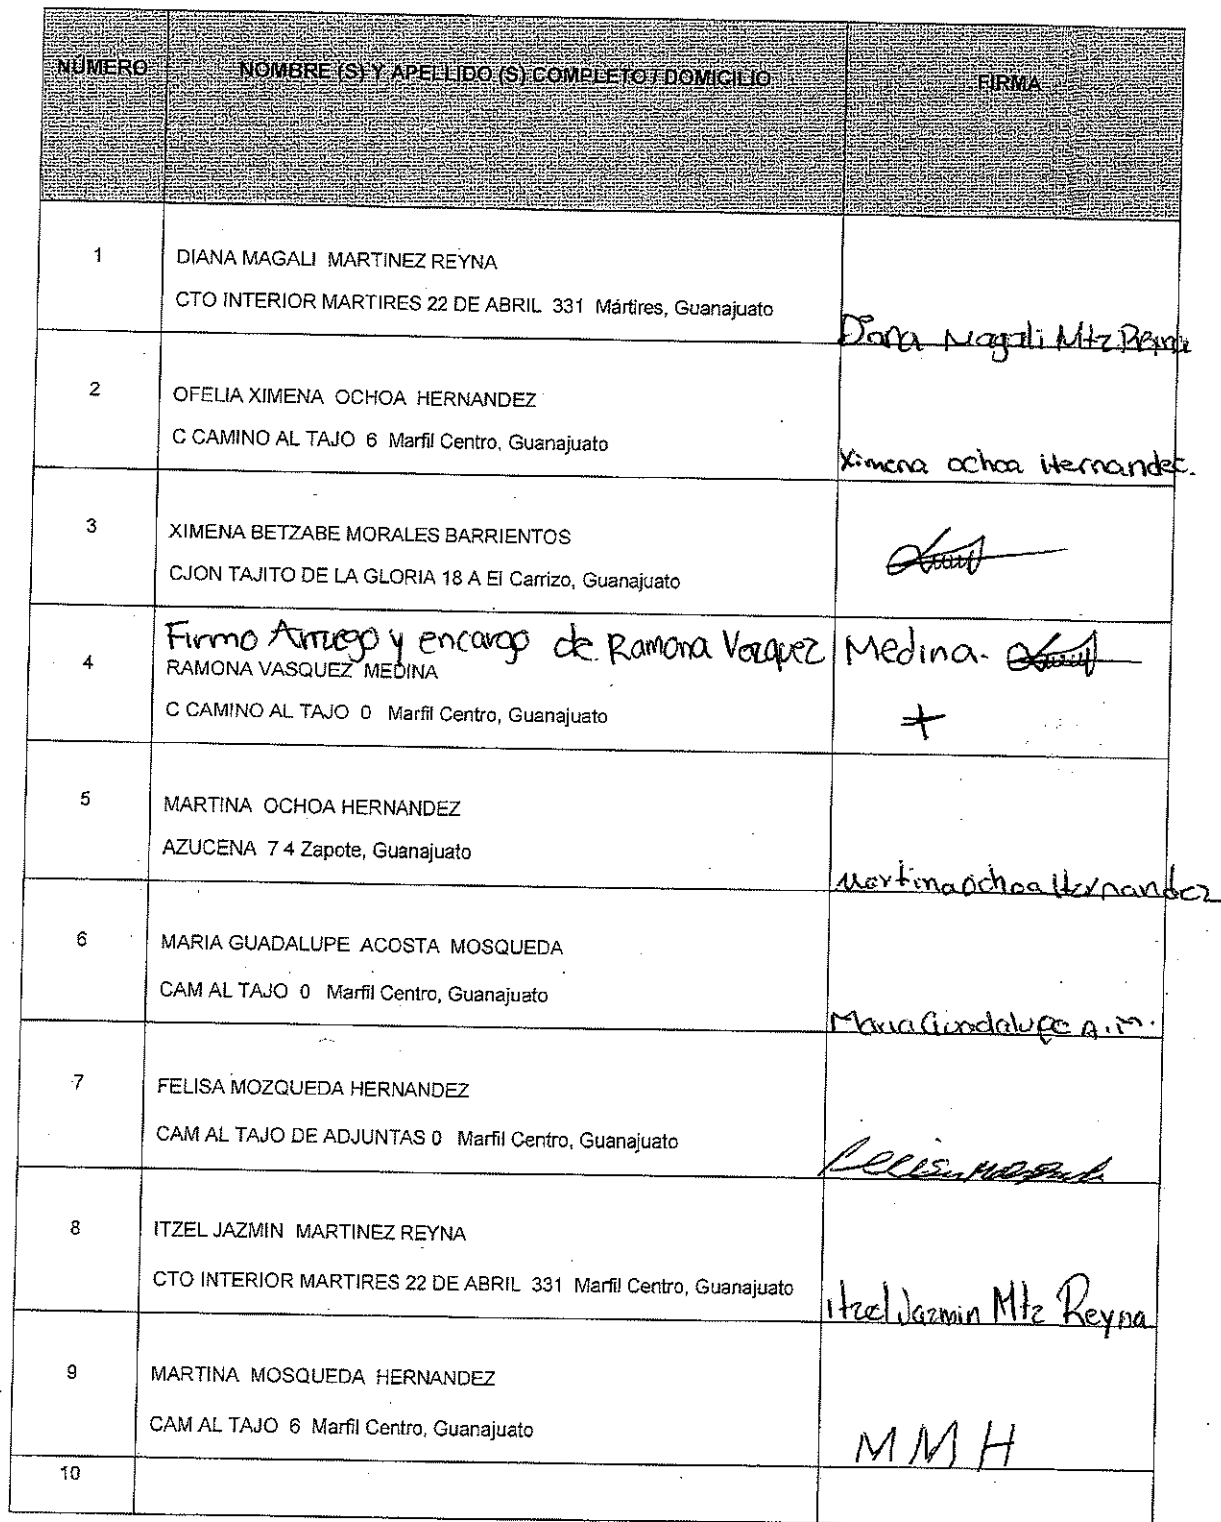 NUMERO NOMBRE (S) Y APELLIDO (S) COMPLETO / DOMICILIO FIRMA
1 DIANA MAGALI MARTINEZ REYNA
CTO INTERIOR MARTIRES 22 DE ABRIL 331 Mártires, Guanajuato
Diana Magali Mtz Reyna
2 OFELIA XIMENA OCHOA HERNANDEZ
C CAMINO AL TAJO 6 Marfil Centro, Guanajuato
Ximena ochoa Hernandez.
3 XIMENA BETZABE MORALES BARRIENTOS
CJON TAJITO DE LA GLORIA 18 A El Carrizo, Guanajuato
Firmo Arruego y encargo de Ramona Vazquez Medina.
4 RAMONA VASQUEZ MEDINA
C CAMINO AL TAJO 0 Marfil Centro, Guanajuato
+
5 MARTINA OCHOA HERNANDEZ
AZUCENA 7 4 Zapote, Guanajuato
Martina ochoa Hernandez
6 MARIA GUADALUPE ACOSTA MOSQUEDA
CAM AL TAJO 0 Marfil Centro, Guanajuato
Maria Guadalupe A.M.
7 FELISA MOZQUEDA HERNANDEZ
CAM AL TAJO DE ADJUNTAS 0 Marfil Centro, Guanajuato
8 ITZEL JAZMIN MARTINEZ REYNA
CTO INTERIOR MARTIRES 22 DE ABRIL 331 Marfil Centro, Guanajuato
itzel Jazmin Mtz Reyna
9 MARTINA MOSQUEDA HERNANDEZ
CAM AL TAJO 6 Marfil Centro, Guanajuato
M M H
10